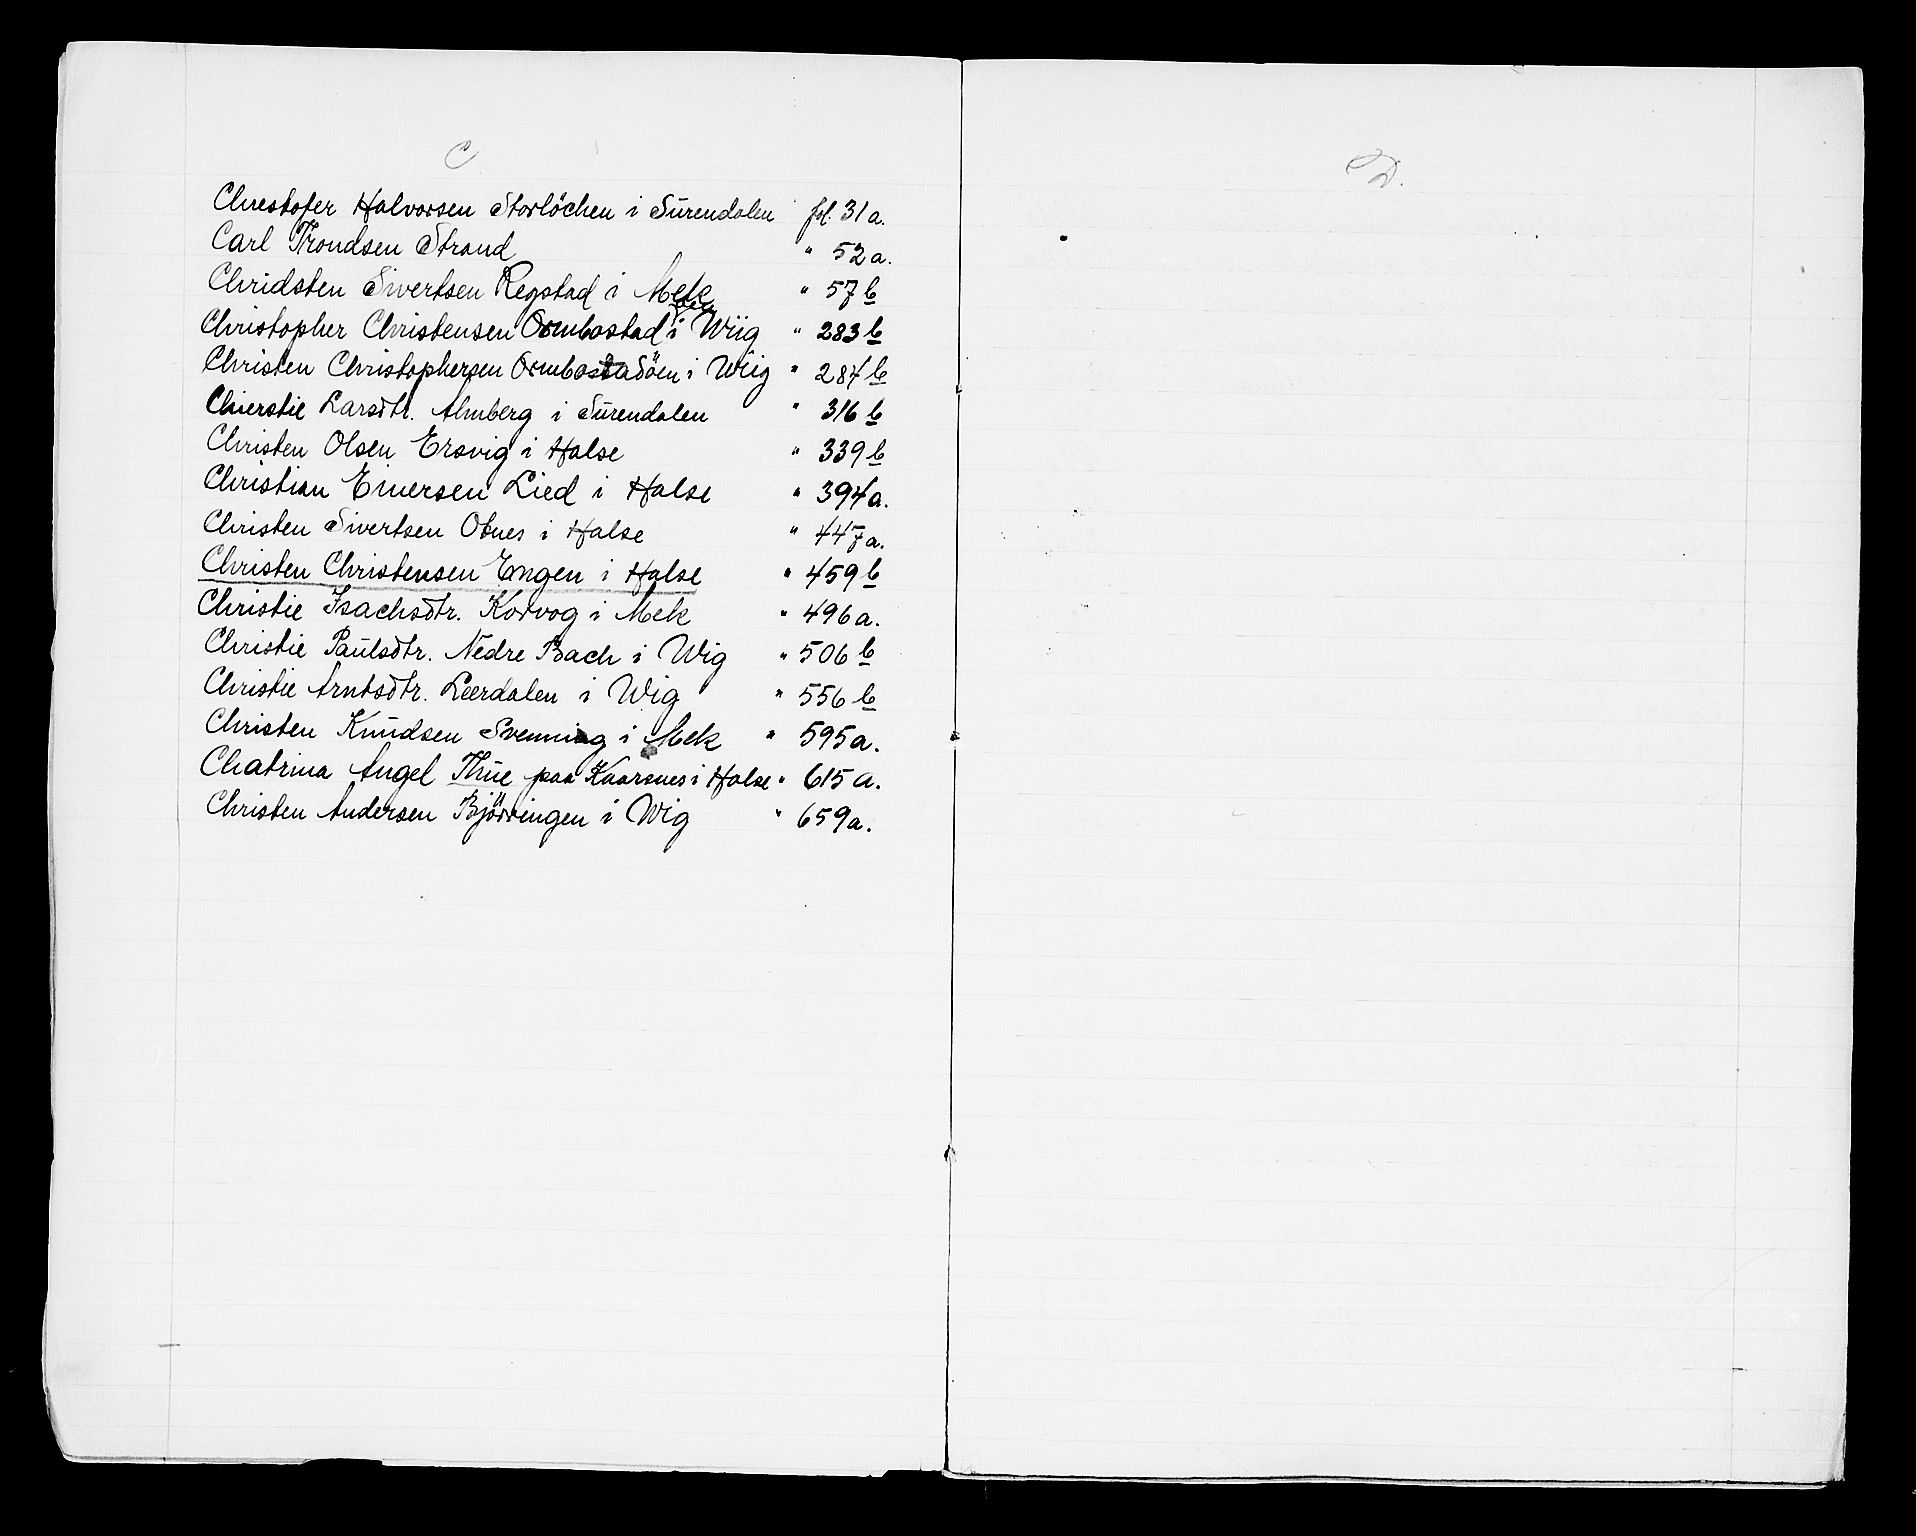 C
Chrestofer Halvorsen Storlöchen i Surendalen fol. 31 a.
Carl Trondsen Strand " 52 a.
Chridsten Sivertsen Regstad i Mek " 57 b
Christopher Christensen Ormbostadöen i Wiig " 283 b
Christen Christophersen Ormbostadöen i Wiig " 284 b
Chierstie Larsdtr. Almberg i Surendalen " 316 b
Christen Olsen Ersvig i Halse " 339 b
Christian Einersen Lied i Halse " 394 a.
Christen Sivertsen Otnes i Halse " 447 a.
Christen Christensen Engen i Halse " 459 b
Christie Isachsdtr. Korvog i Mek " 496 a.
Christie Paulsdtr. Nedre Bach i Wig " 506 b
Christie Arntsdtr. Leerdalen i Wig " 556 b
Christen Knudsen Svenning i Mek " 595 a.
Chatrina Angel Thue paa Kaarsnes i Halse " 615 a.
Christen Andersen Bjørringen i Wig " 659 a.
D.